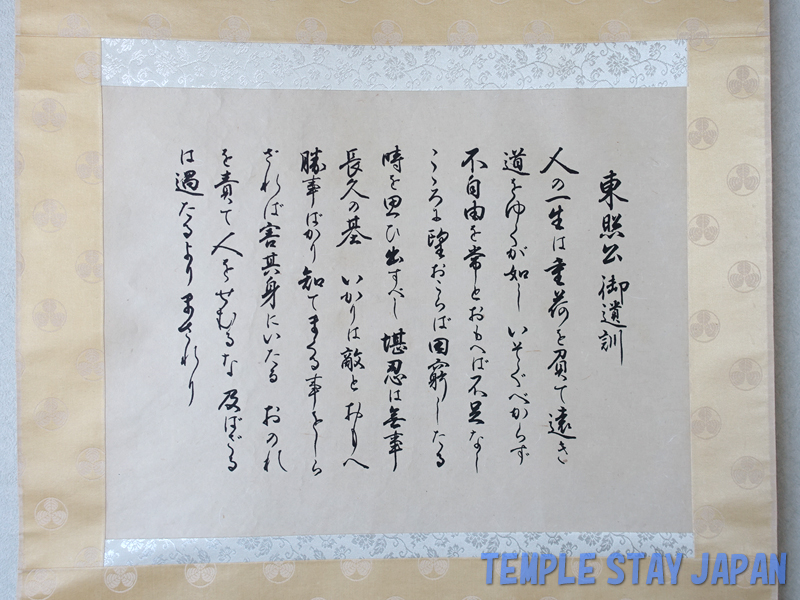 東照公御遺訓
人の一生は重荷を負て遠き
道をゆくが如し いそぐべからず
不自由を常とおもへば不足なし
こころに望おこらば困窮したる
時を思ひ出すべし 堪忍は無事
長久の基 いかりは敵とおもへ
勝事ばかり知てまくる事をしら
ざれば害其身にいたる おのれ
を責て人をせむるな 及ばざる
は過たるよりまされり
TEMPLE STAY JAPAN